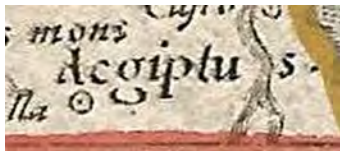 s mons
Aegiptu s.
lla